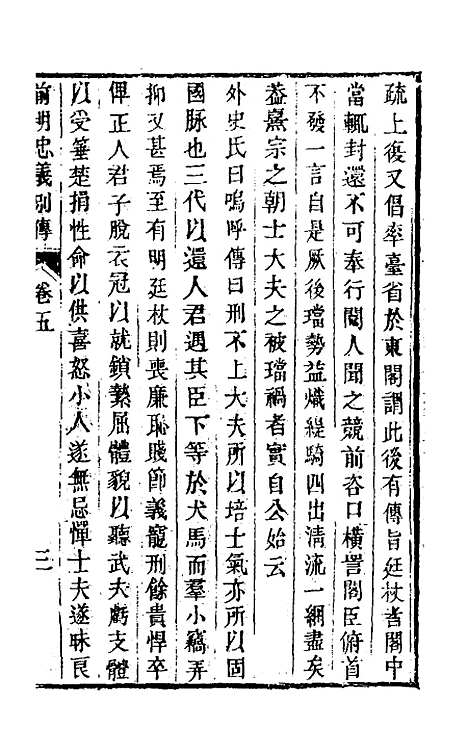 疏上復又倡率臺省於東閣謂此後有傳旨廷杖者閣中
當輒封還不可奉行閹人聞之競前呇口橫詈閣臣俯首
不發一言自是厥後璫勢益熾緹騎四出清流一網盡矣
葢熹宗之朝士大夫之被璫禍者實自公始云
外史氏曰嗚呼傳曰刑不上大夫所以培士氣亦所以固
國脉也三代以還人君遇其臣下等於犬馬而羣小竊弄
抑又甚焉至有明廷杖則喪廉恥賤節義寵刑餘貴悍卒
俾正人君子脫衣冠以就鎖繫屈體貌以聽武夫虧支體
以受箠楚捐性命以供喜怒小人遂無忌憚士夫遂昧良
前明忠義别傳
卷五
三